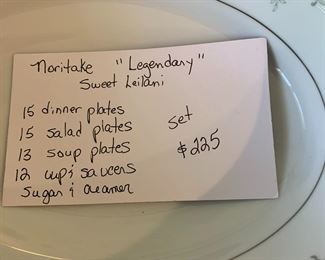 Noritake "Legendary"
Sweet Leilani
15 dinner plates
15 salad plates
13 soup plates
12 cup & saucers
Sugar & creamer
Set
$225